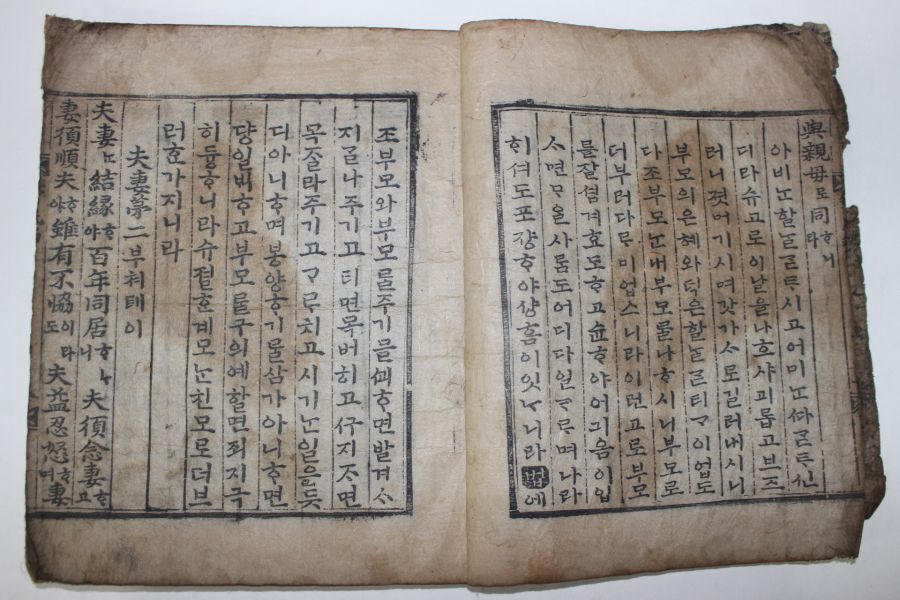 與親母로同ᄒᆞ니라
아비ᄂᆞᆫ할ᄂᆞᆯᄀᆞᄐᆞ시고어미ᄂᆞᆫᄯᅡᄀᆞᄐᆞ신
디라슈고로이날을나ᄒᆞ샤괴롭고브즈
러니졋머기시며갓가ᄉᆞ로길러내시니
부모의은혜와덕은할ᄂᆞᆯᄀᆞ티ᄀᆞ이업도
다조부모ᄂᆞᆫ내부모ᄅᆞᆯ나ᄒᆞ시니부모로
더부러다ᄅᆞ미업스니라이런고로부모
를잘셤겨효도ᄒᆞ고슌ᄒᆞ야어긔음이업
ᄉᆞ면ᄆᆞᄋᆞᆯ사ᄅᆞᆷ도어디다일ᄏᆞᄅᆞ며나라
히셔도포쟝ᄒᆞ야샹홈이잇ᄂᆞ니라 에
조부모와부모ᄅᆞᆯ주기믈ᄭᅬᄒᆞ면발겨ᄉᆞ
지ᄅᆞᆯ나주기고티면목버히고ᄭᅮ지즈면
목ᄌᆞᆯ라주기고ᄀᆞᄅᆞ치고시기ᄂᆞᆫ일을듯
디아니ᄒᆞ며봉양ᄒᆞ기ᄅᆞᆯ삼가아니ᄒᆞ면
댱일ᄇᆡᆨᄒᆞ고부모ᄅᆞᆯ구의예할면죄지극
히듕ᄒᆞ니라슈졀ᄒᆞᆫ계모ᄂᆞᆫ친모로더브
러ᄒᆞᆫ가지니라
夫妻第二부쳐뎨이
夫妻ᄂᆞᆫ結緣ᄒᆞ야百年同居ᄒᆞᄂᆞ니夫須念妻ᄒᆞ고
妻須順夫ᄒᆞ야雖有不協이라도夫益忍怒ᄒᆞ며妻